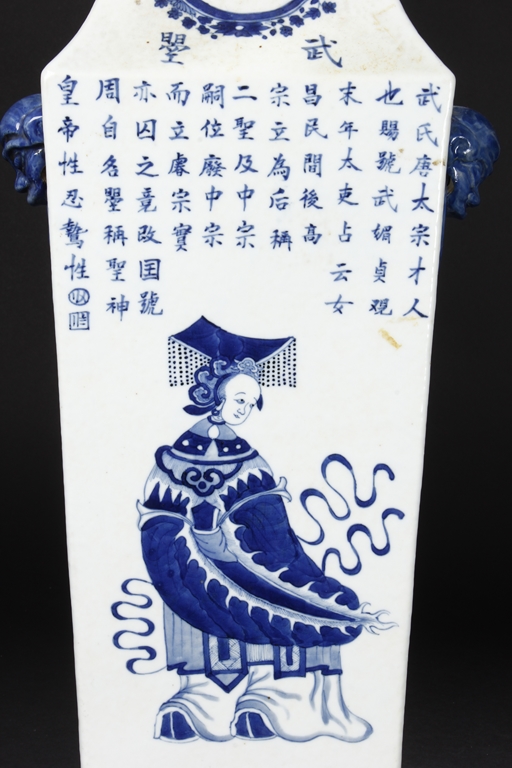 武曌
武氏唐太宗才人
也賜號武媚貞觀
末年太吏占云女
昌民間後高
宗立為后稱
二聖及中宗
嗣位廢中宗
而立睿宗實
亦囚之竟改囯號
周自名曌稱聖神
皇帝性忍鷙性